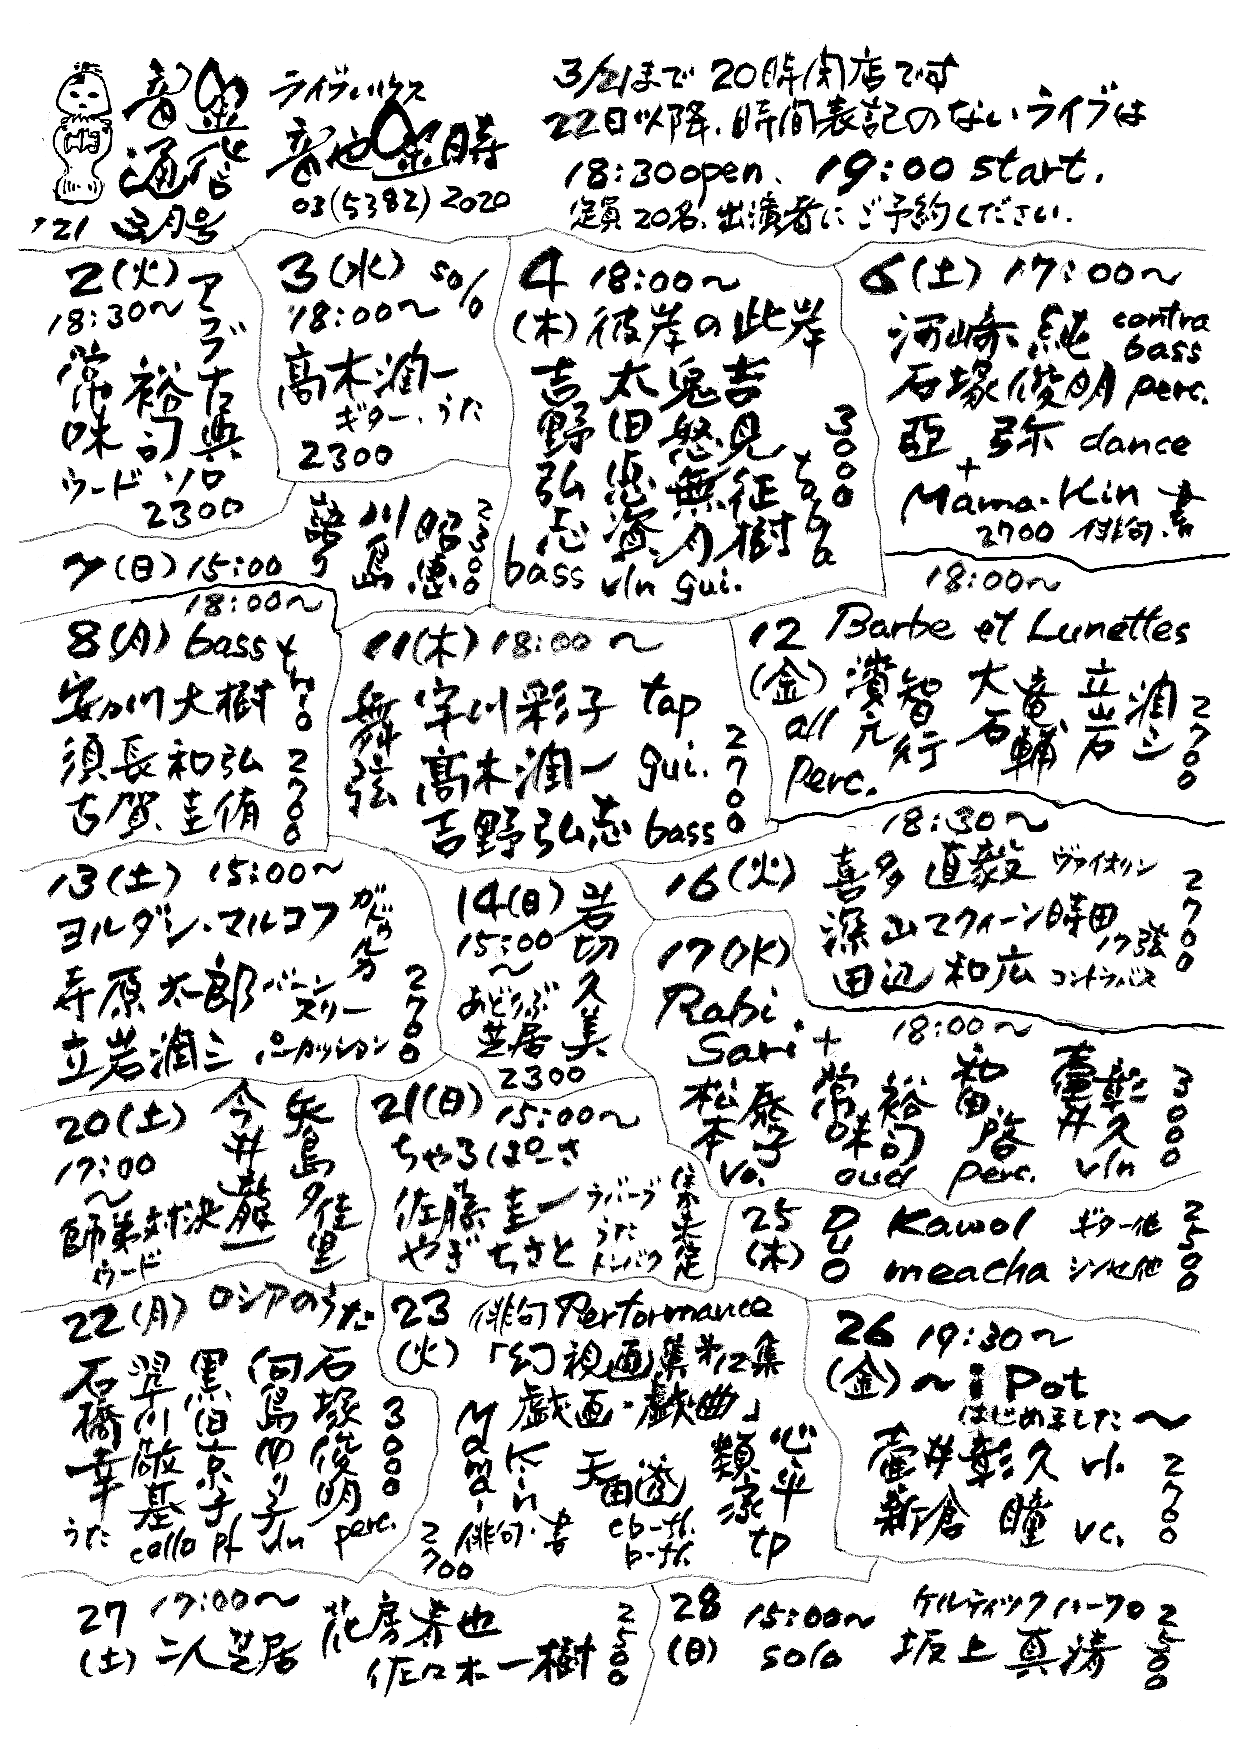 音金通信
'21 3月号
ライブハウス
音や金時
03(5382)2020
3/21まで 20時閉店です
22日以降、時間表記のないライブは
18:30open、19:00 start.
定員20名、出演者にご予約ください.
2(火) アラブ古典
18:30〜
常味裕司
ウードソロ
2300
3(水) solo
18:00〜
高木潤一
ギター、うた
2300
4 18:00〜
(木) 彼岸の此岸
吉野弘志 bass
太田惠資 vln
鬼怒無月 gui.
吉見征樹
3000
6(土) 17:00〜
河崎純 contra bass
石塚俊明 perc.
亞弥 dance
+
Mama-Kin 書
2700 俳句.書
7(日) 15:00
語り
川島昭恵
2300
8(月) 18:00〜
bass
安カ川大樹
須長和弘
古賀圭侑
2700
11(木) 18:00〜
舞弦
宇川彩子 tap
高木潤一 gui.
吉野弘志 bass
2700
12(金) 18:00〜
Barbe et Lunettes
濱元智行
大石竜輔
立岩潤三
all perc.
2700
13(土) 15:00〜
ヨルダン・マルコフ ガドゥルカ
寺原太郎 バーンスリー
立岩潤三 パーカッション
2700
14(日)
15:00〜
岩切久美
あどりぶ芝居
2300
16(火) 18:30〜
喜多直毅 ヴァイオリン
深山マクイーン時田 17弦
田辺和広 コントラバス
2700
17(水) 18:00〜
Rabi Sari+
松本泰子 vo.
常味裕司 oud
和田啓 perc.
壷井彰久 vln
3000
20(土)
17:00〜
師弟対決
ウード
今井龍一
矢島夕佳里
21(日) 15:00〜
ちゃるぱーさ
佐藤圭一 ラバーブ
やぎちさと うた トンバク
25(木)
DUO
Kawol ギター他
meacha シンセ他
2500
22(月) ロシアのうた
石橋幸 うた
翠川敬基 cello
黒田京子 pf
向島ゆり子 vln
石塚俊明 perc.
3000
23(火) 俳句Performance
「幻視画集第12集
戯画・戯曲」
Mama-Kin 俳句・書
天田透 cb-fl. b-fl.
類家心平 tp
2700
26(金) 19:30〜
〜i Pot
はじめました〜
壷井彰久 vl.
新倉瞳 vc.
2700
27(土) 17:00〜
二人芝居
花房春也
佐々木一樹
2500
28(日) 15:00〜
solo
ケルティックハープ
坂上真清
2500